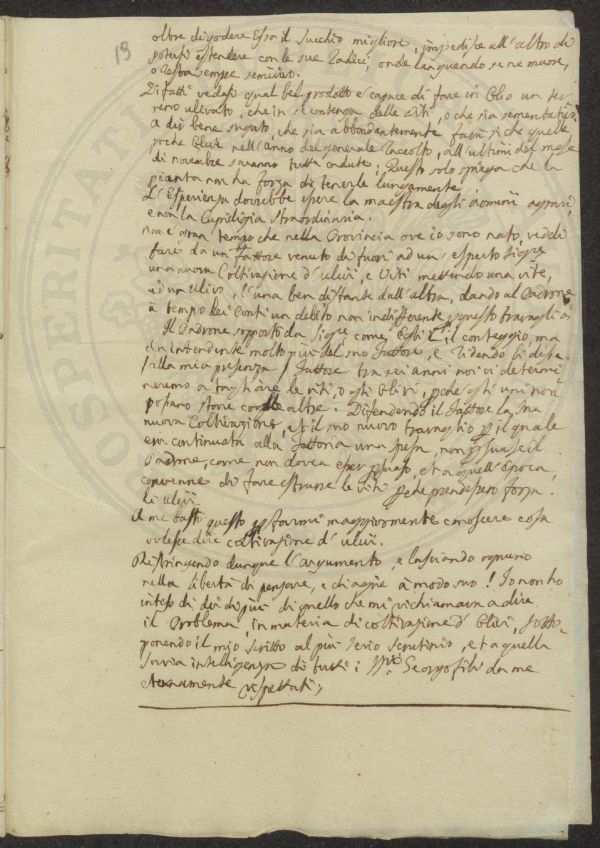 13
oltre di godere Essa il succhio migliore, impedisce all'altro di
potersi estendere con le sue radici, onde languendo se ne muore,
o resta sempre semivivo.
Di fatti vedasi qual bel prodotto è capace di fare in Olio un ter
reno ulivato, che in se contenga delle Viti, o che sia sementato
a dir bene sugato, che sia abbondantemente farsi si che quelle
poche Ulive nell'anno del generale raccolto, all'ultimi del mese
di novembre saranno tutte cadute; Questo solo spiega che la
pianta non ha forza di tenerle lungamente.
L'Esperienza dovrebbe essere la maestra degli uomini
e non la Cupidigia straordinaria.
non è gran tempo che nella Provincia ove io sono nato, veddi
fare da un fattore venuto di fuori ad un esperto Sigre
una nuova Coltivazione d'ulivi, e Viti mettendo una vite,
ed un Ulivo, l'una ben distante dall'altra, dando al Padrone
a tempo dei Conti un debito non indifferente questo travaglio
Il Padrone sopportò da Sigre come Egli è il conteggio, ma
da intendente molto più del suo fattore, e ridendo li disse
alla mia presenza / fattore tra sei anni noi ci determi
neremo a tagliare le viti, o gli Olivi, pche gli uni non
possano stare con le altre. Difendendo il fattore la sua
nuova Coltivazione, et il suo nuovo travaglio p il quale
era continuata alla fattoria una spesa, non psuase il
Padrone, come non dovea esser psuaso, et a quell'epoca
convenne di fare estrarre le viti pche prendessero forza
li ulivi.
A me bastò questo p farmi maggiormente conoscere cosa
volesse dire coltivazione d'ulivi.
Restringendo dunque l'argumento, e lasciando ognuno
nella libertà di pensare, e di agire à modo suo! Io non ho
inteso di dir di più di quello che mi richiamava a dire
il Problema, in materia di coltivazione d'Olivi, sotto-
ponendo il mio scritto al più serio scrutinio, et a quella
savia intelligenza di tutti i Georgofili da me
eternamente rispettati;